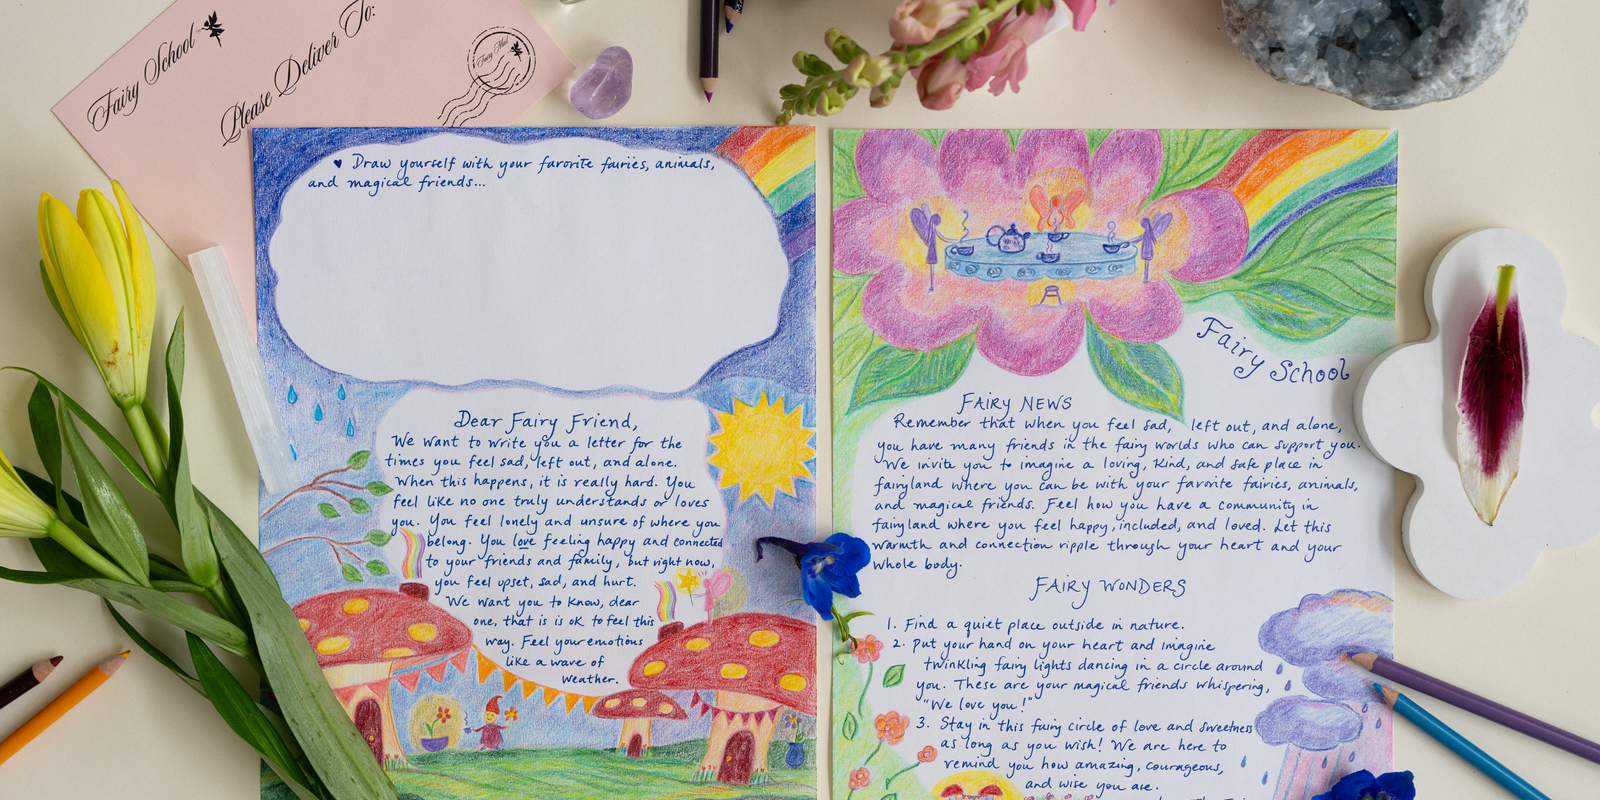 Fairy School
Please Deliver To:
Fairy Mail
♥ Draw yourself with your favorite fairies, animals,
and magical friends...
Dear Fairy Friend,
We want to write you a letter for the
times you feel sad, left out, and alone.
When this happens, it is really hard. You
feel like no one truly understands or loves
you. You feel lonely and unsure of where you
belong. You love feeling happy and connected
to your friends and family, but right now,
you feel upset, sad, and hurt.
We want you to know, dear
one, that is is ok to feel this
way. Feel your emotions
like a wave of
weather.
Fairy School
FAIRY NEWS
Remember that when you feel sad, left out, and alone,
you have many friends in the fairy worlds who can support you.
We invite you to imagine a loving, kind, and safe place in
fairyland where you can be with your favorite fairies, animals,
and magical friends. Feel how you have a community in
fairyland where you feel happy, included, and loved. Let this
warmth and connection ripple through your heart and your
whole body.
FAIRY WONDERS
1. Find a quiet place outside in nature.
2. Put your hand on your heart and imagine
twinkling fairy lights dancing in a circle around
you. These are your magical friends whispering,
"We love you!"
3. Stay in this fairy circle of love and sweetness
as long as you wish! We are here to
remind you how amazing, courageous,
and wise you are.